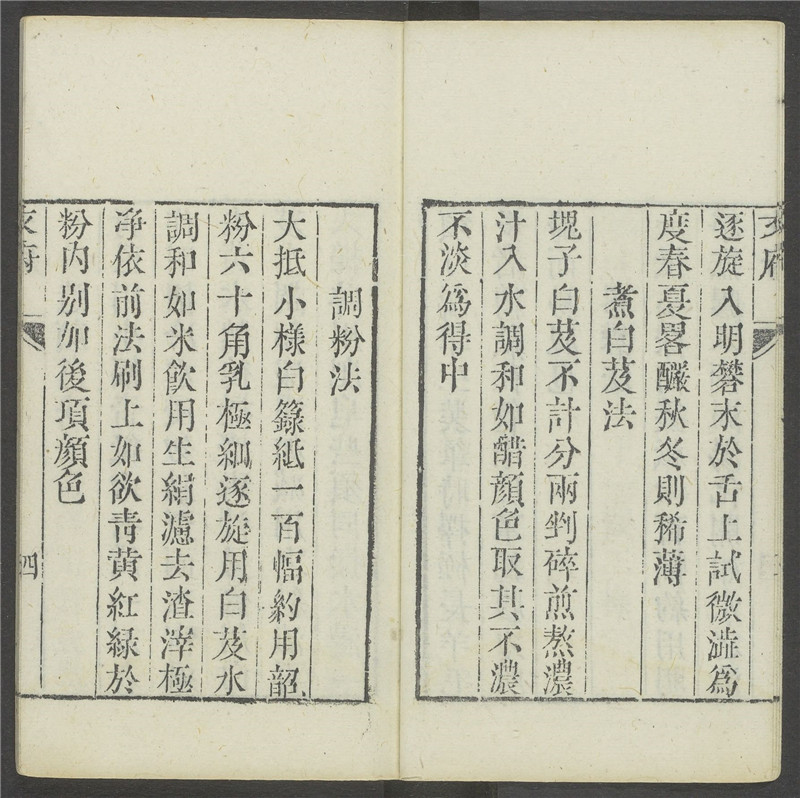 逐旋入明礬末於舌上試微澁為
度春夏畧釅秋冬則稀薄
煮白芨法
塊子白芨不計分兩剉碎煎熬濃
汁入水調和如醋顏色取其不濃
不淡為得中
調粉法
大抵小樣白籙紙一百幅約用韶
粉六十角乳極細逐旋用白芨水
調和如米飲用生絹濾去渣滓極
净依前法刷上如欲青黃紅綠於
粉内别加後項顏色
四